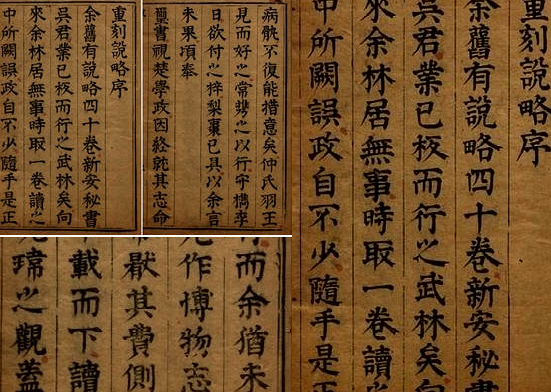 重刻說略序
余舊有說略四十卷新安秘書
吳君業已板而行之武林矣向
來余林居無事時取一卷讀之
中所闕誤政自不少隨手是正
病不復能措意矣仲氏羽王
見而好之常携之以行守檇李
日欲付之梓棃棗已具以余言
未果頃奉
璽書視楚學政因就其志命
重刻說略序
余舊有說略四十卷新安秘書
吳君業已板而行之武林矣向
來余林居無事時取一卷讀
中所闕誤政自不少隨手是正
而余猶未
作博物志
厭其費側
載而下讀
瑋之觀蓋